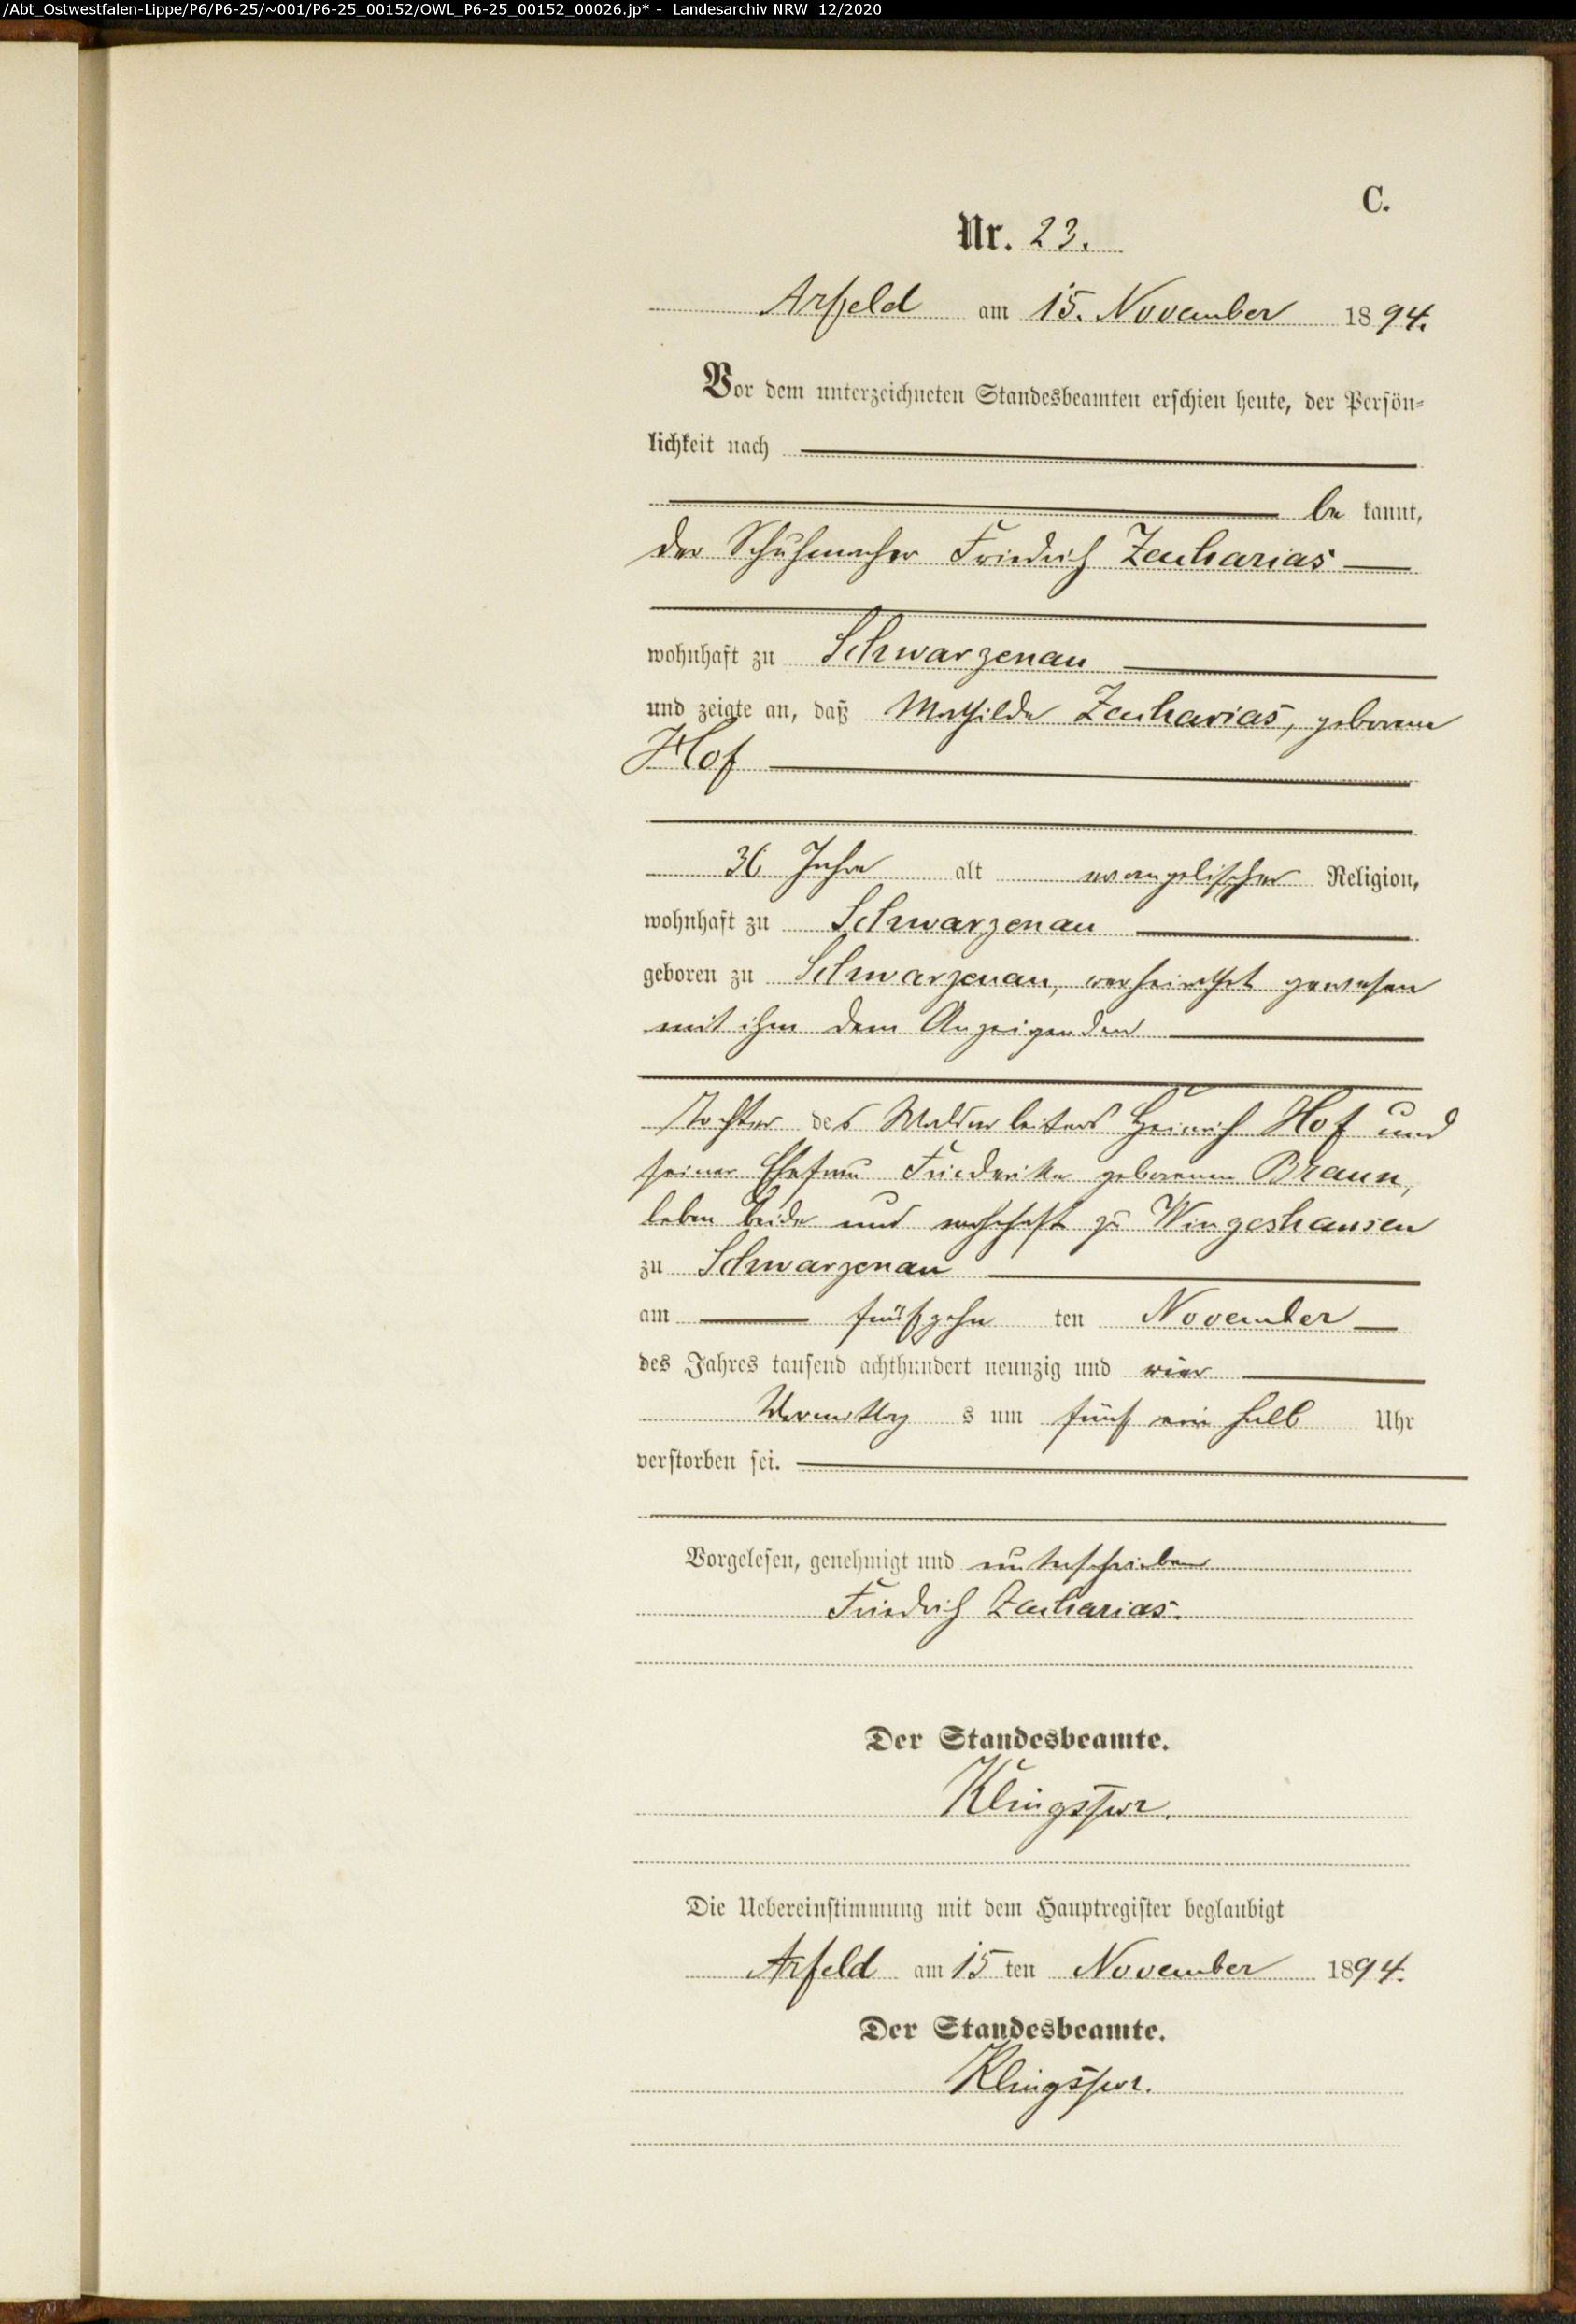 /Abt_Ostwestfalen-Lippe/P6/P6-25/~001/P6-25_00152/OWL_P6-25_00152_00026.jp* - Landesarchiv NRW 12/2020
C.
Nr. 23.
Arfeld am 15. November 1894.
Vor dem unterzeichneten Standesbeamten erschien heute, der Persön-
lichkeit nach
be kannt,
der Schuhmacher Friedrich Zacharias
wohnhaft zu Schwarzenau
und zeigte an, daß Mathilde Zacharias, geborene
Hof
36 Jahre alt evangelischer Religion,
wohnhaft zu Schwarzenau
geboren zu Schwarzenau, verheirathet gewesen
mit ihm dem Anzeigenden
Tochter des Heinrich Hof und
seiner Ehefrau Friederike geborenen Braun,
leben beide und wohnhaft zu Wingeshausen
zu Schwarzenau
am fünfzehn ten November
des Jahres tausend achthundert neunzig und vier
Vormittag s um fünf ein halb Uhr
verstorben sei.
Vorgelesen, genehmigt und unterschrieben
Friedrich Zacharias.
Der Standesbeamte.
Klingspor.
Die Uebereinstimmung mit dem Hauptregister beglaubigt
Arfeld am 15 ten November 1894.
Der Standesbeamte.
Klingspor.